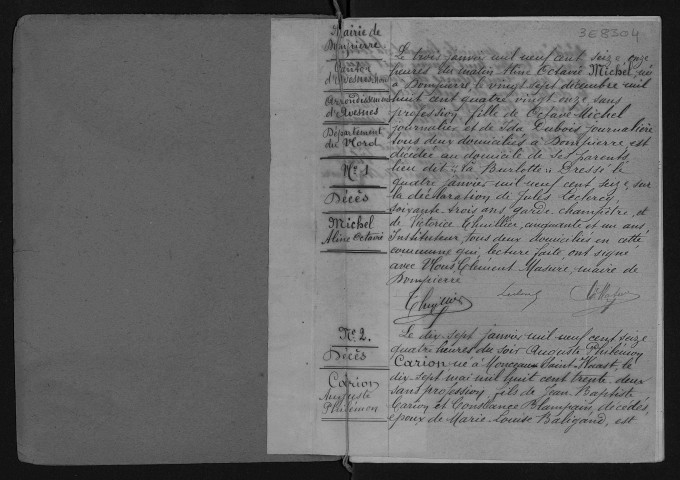 3E8304
Mairie de
Dompierre
Canton
d'Avesnes Nord
Arrondissement
d'Avesnes
Département
du Nord
N° 1
Décès
Michel
Aline Octavie
Le trois janvier mil neuf cent seize, onze
heures du matin Aline Octavie Michel, née
à Dompierre, le vingt sept décembre mil
huit cent quatre vingt onze sans
profession, fille de Octave Michel
journalier et de Ida Dubois journalière
tous deux domiciliés à Dompierre est
décédée au domicile de ses parents
lieu dit "la Burlotte". Dressé le
quatre janvier mil neuf cent seize, sur
la déclaration de Jules Leclercq
soixante trois ans garde champêtre, et
de Victorice Thuillier, cinquante et un ans
Instituteur, tous deux domiciliés en cette
commune qui, lecture faite, ont signé
avec Nous Clément Masure, maire de
Dompierre
N° 2.
Décès
Carion
Auguste
Philémon
Le dix sept janvier mil neuf cent seize
quatre heures du soir Auguste Philémon
Carion né à Monceau Saint Waast, le
dix sept mai mil huit cent trente deux
sans profession, fils de Jean Baptiste
Carion et Constance Blampain, décédés,
époux de Marie Louise Baligand, est